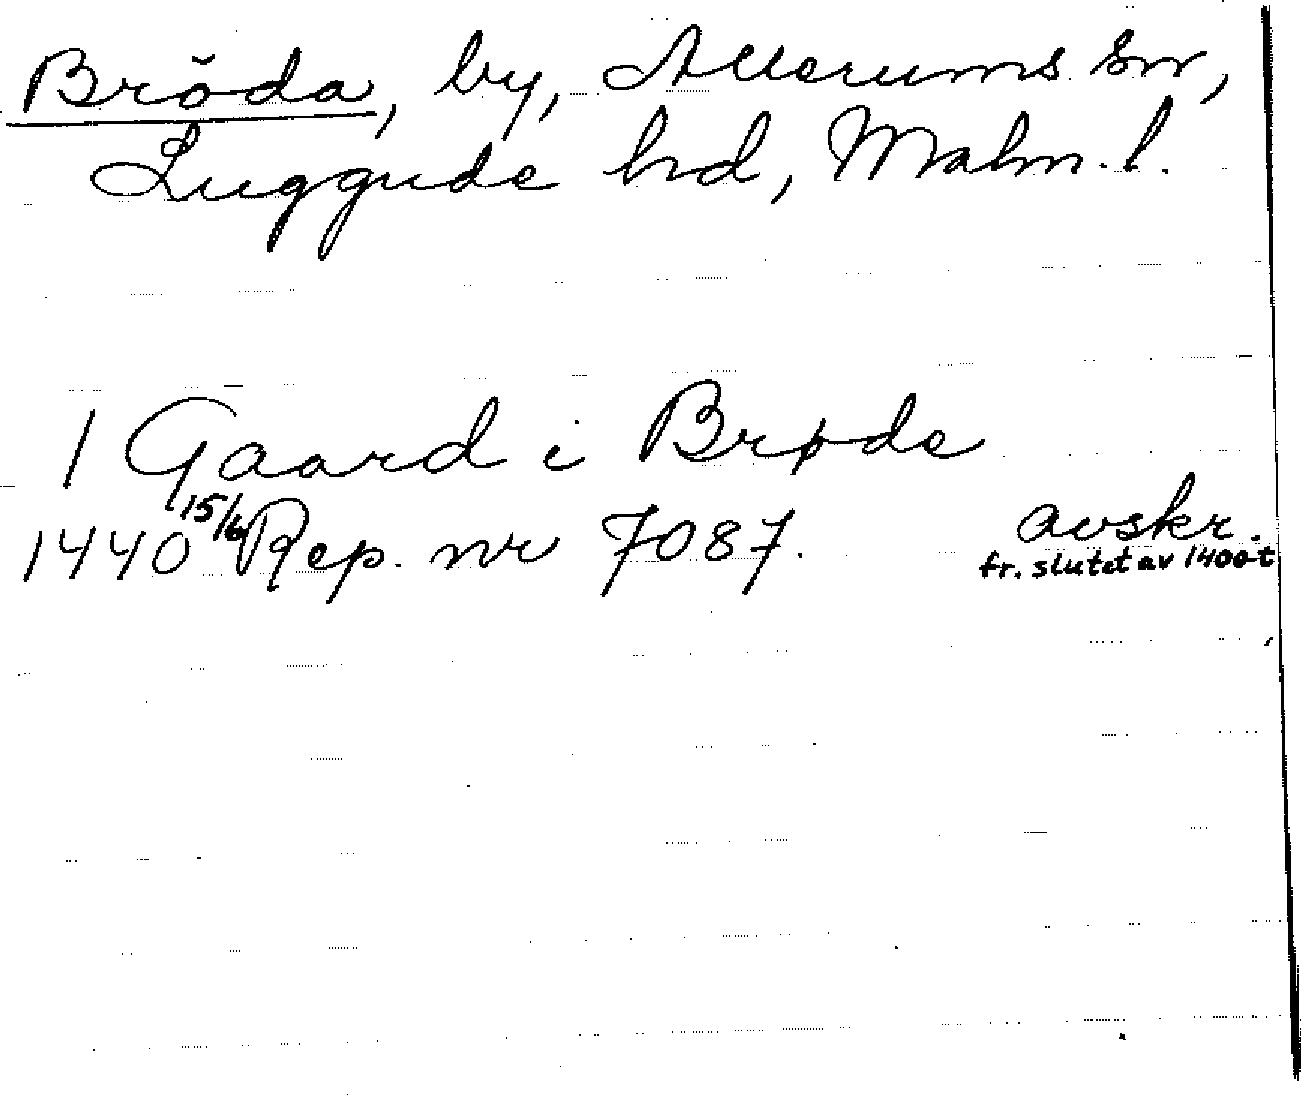 Bröda, by, Allerums sn,
Luggude hd, Malm. l.
1 Gaard i Brøde
1440 15/6 Rep. nr 7087. avskr.
fr. slutet av 1400-t